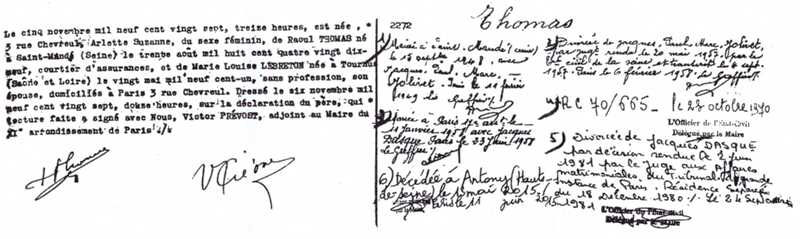 Le cinq novembre mil neuf cent vingt sept, treize heures, est née ,
3 rue Chevreul, Arlette Suzanne, du sexe féminin, de Raoul THOMAS né
à Saint-Mandé (Seine) le trente août mil huit cent quatre vingt dix-
neuf, courtier d'assurances, et de Marie Louise LEBRETON née à Tournus
(Saône et Loire) le vingt mai mil neuf cent-un, sans profession, son
épouse, domiciliés à Paris 3 rue Chevreul. Dressé le six novembre mil
neuf cent vingt sept, douse heures, sur la déclaration du père, qui
lecture faite a signé avec Nous, Victor PRÉVOST, adjoint au Maire du
arrondissement de Paris
2272
Thomas
Marié à Saint Mandé
le septembre 1948, avec
Jacques, Paul, Marc,
Jolivet. Paris le
1949 Le Greffier
Mariée à Paris le
janvier 1958 avec Jacques
Dasque Paris le 1958
Le Greffier
6) Décédée à Antony (Hauts-
de-Seine) le mai 2015
juin 2015
Divorcée de Jacques, Paul, Marc, Jolivet,
par jugt rendu le 1957 par le
civil de la Seine et transcrit le sept.
1957. Paris le 1958. Le Greffier
RC 70/665 le 28 octobre 1970
L'Officier de l'Etat-Civil
Délégué par le Maire
5) Divorcée de Jacques DASQUE
par décision rendue le 2 juin
1981 par le Juge aux Affaires
matrimoniales, du Tribunal de grande
Instance de Paris. Résidence séparée
du 18 Décembre 1980. Le 24 Septembre
1981
L'Officier de l'Etat-Civil
Délégué par le Maire